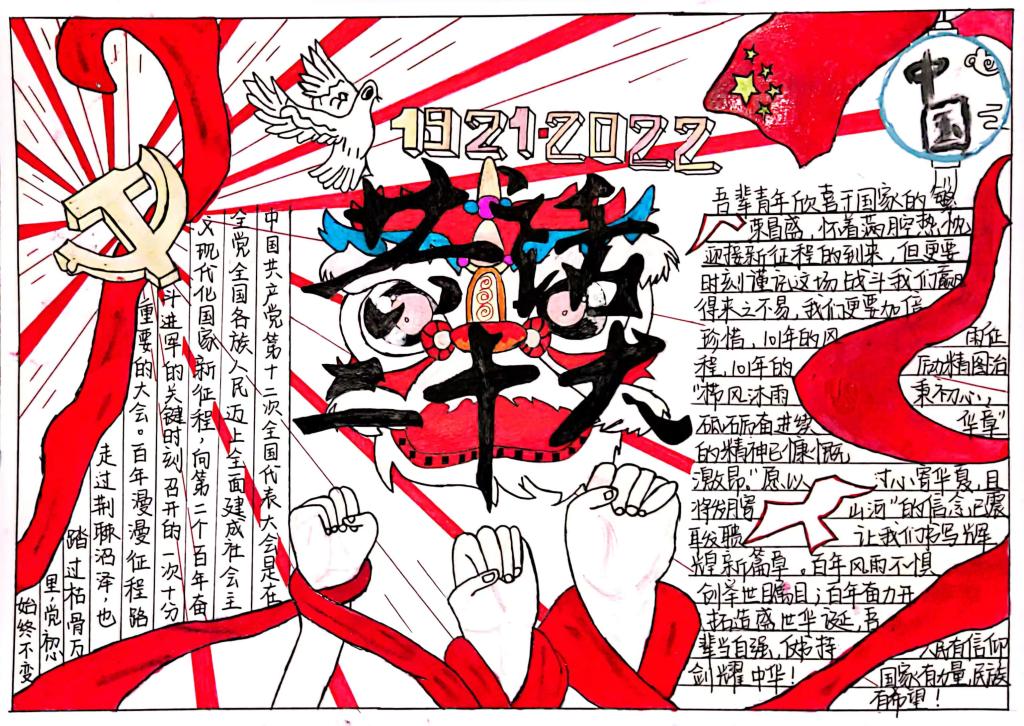 1921·2022
中国
喜迎
二十大
中国共产党第十二次全国代表大会是在
全党全国各族人民迈上全面建成社会主
义现代化国家新征程,向第二个百年奋
斗进军的关键时刻召开的一次十分
重要的大会。百年漫漫征程路
走过荆棘沼泽,也
踏过枯骨万
里,党初心
始终不变
吾辈青年欣喜于国家的繁
荣昌盛,怀着满腔热忱
迎接新征程的到来,但更要
时刻谨记这场战斗我们赢
得来之不易,我们更要加倍
珍惜,101年的风 雨征
程,101年的 励精图治
"栉风沐雨 秉初心,
砥砺奋进续 华章"
的精神已慷慨
激昂"愿以 寸心寄华夏,且
将岁月赠 山河"的信念已震
耳发聩 让我们书写辉
煌新篇章。百年风雨不惧
创举世瞩目;百年奋力开
拓造盛世华诞,吾
辈当自强, 持 人民有信仰
剑耀中华! 国家有力量,民族
有希望!